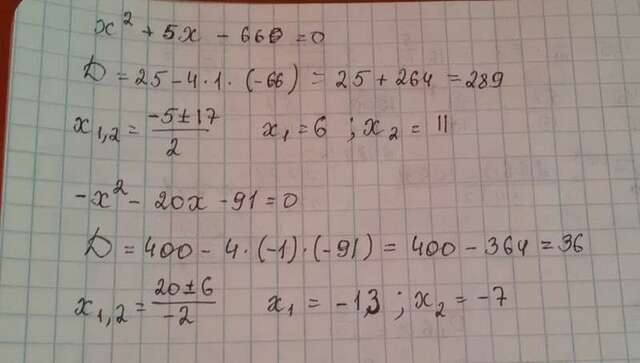 x² + 5x - 66 = 0
D = 25 - 4 · 1 · (-66) = 25 + 264 = 289
x₁,₂ = (-5 ± 17)/2 x₁ = 6 ; x₂ = 11
-x² - 20x - 91 = 0
D = 400 - 4 · (-1) · (-91) = 400 - 364 = 36
x₁,₂ = (20 ± 6)/-2 x₁ = -13 ; x₂ = -7